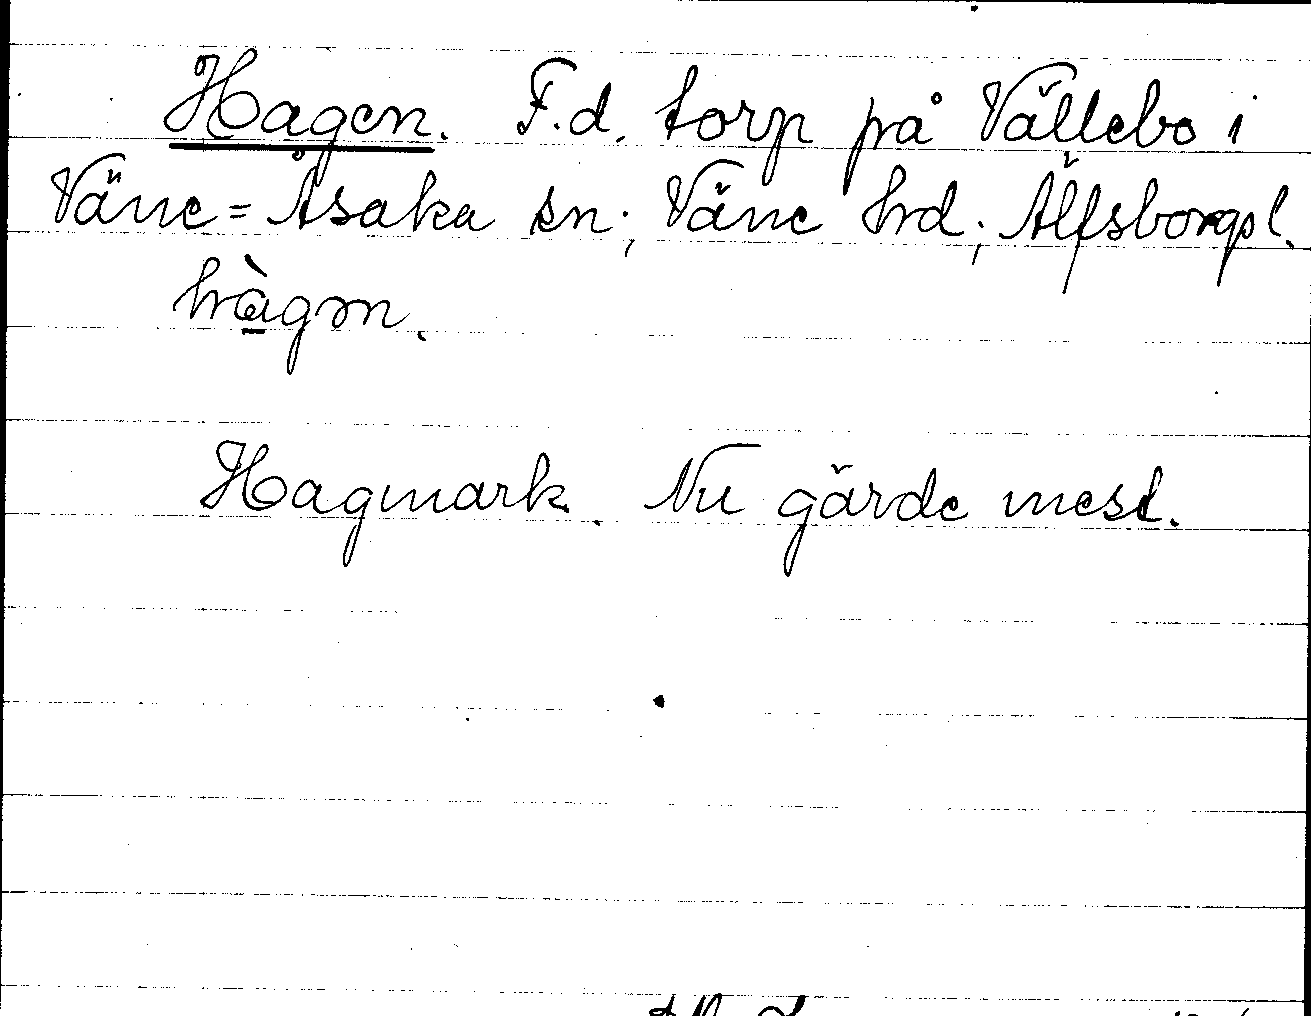 Hagen. F.d. torp på Vällebo i
Väne-Åsaka sn; Väne hrd; Älfsborgs l.
hàgɘn.
Hagmark. Nu gärde mest.